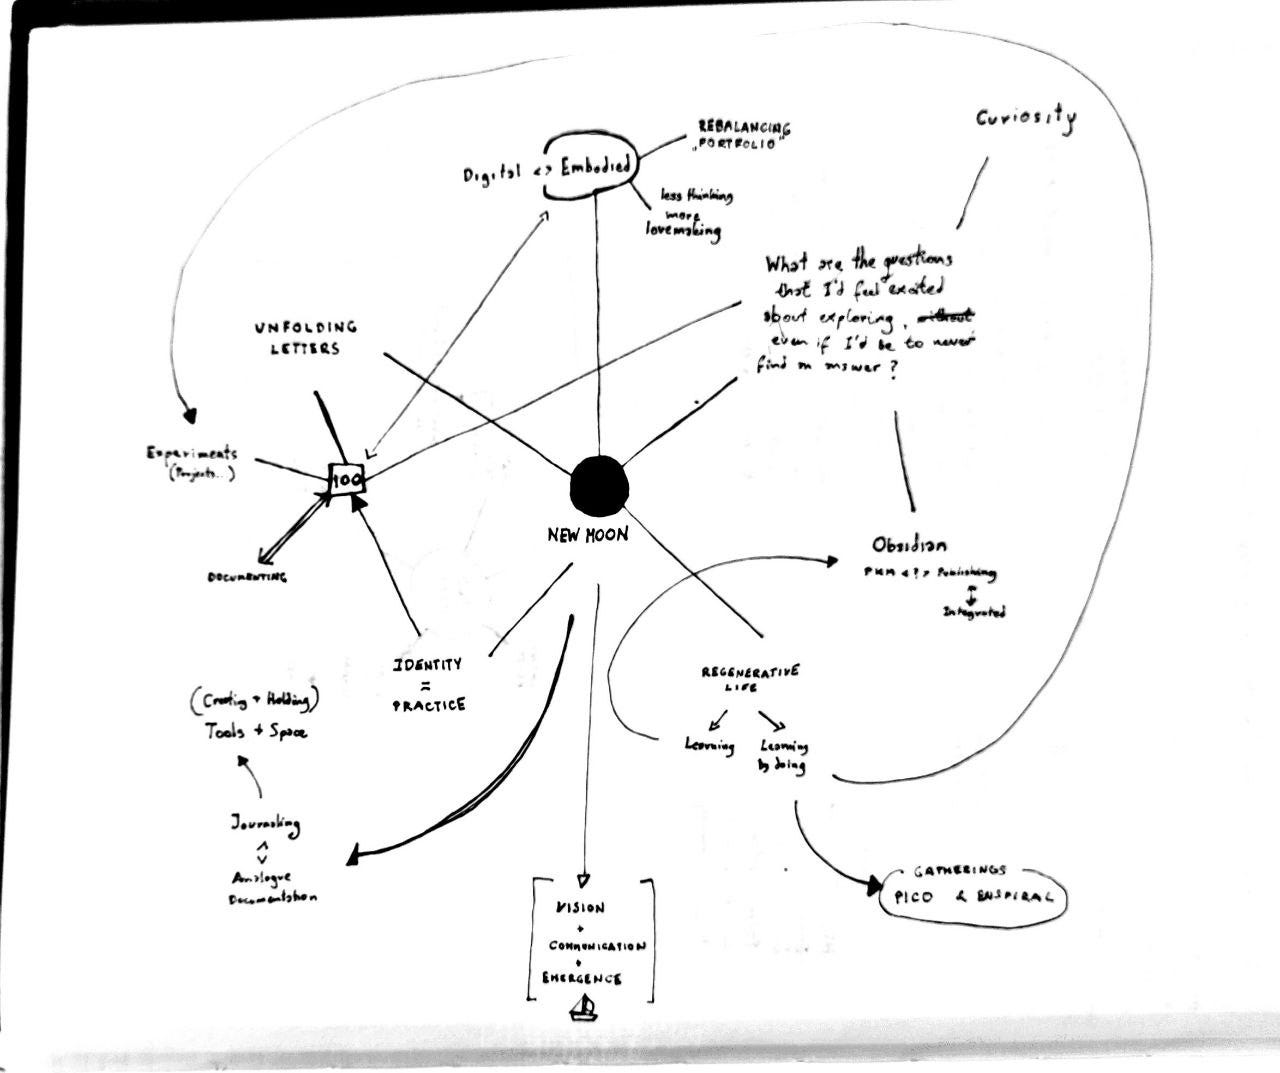 Curiosity
REBALANCING
„PORTFOLIO"
Digital <> Embodied
less thinking
more
lovemaking
What are the questions
that I'd feel excited
about exploring, without
even if I'd be to never
find an answer?
UNFOLDING
LETTERS
Experiments
(Projects..)
100
NEW MOON
DOCUMENTING
Obsidian
PKM <?> Publishing
Integrated
IDENTITY
=
PRACTICE
REGENERATIVE
LIFE
Learning
Learning
by doing
(Creating + Holding)
Tools + Space
Journaling
Analogue
Documentation
GATHERINGS
PICO & ENSPIRAL
VISION
+
COMMUNICATION
+
EMERGENCE